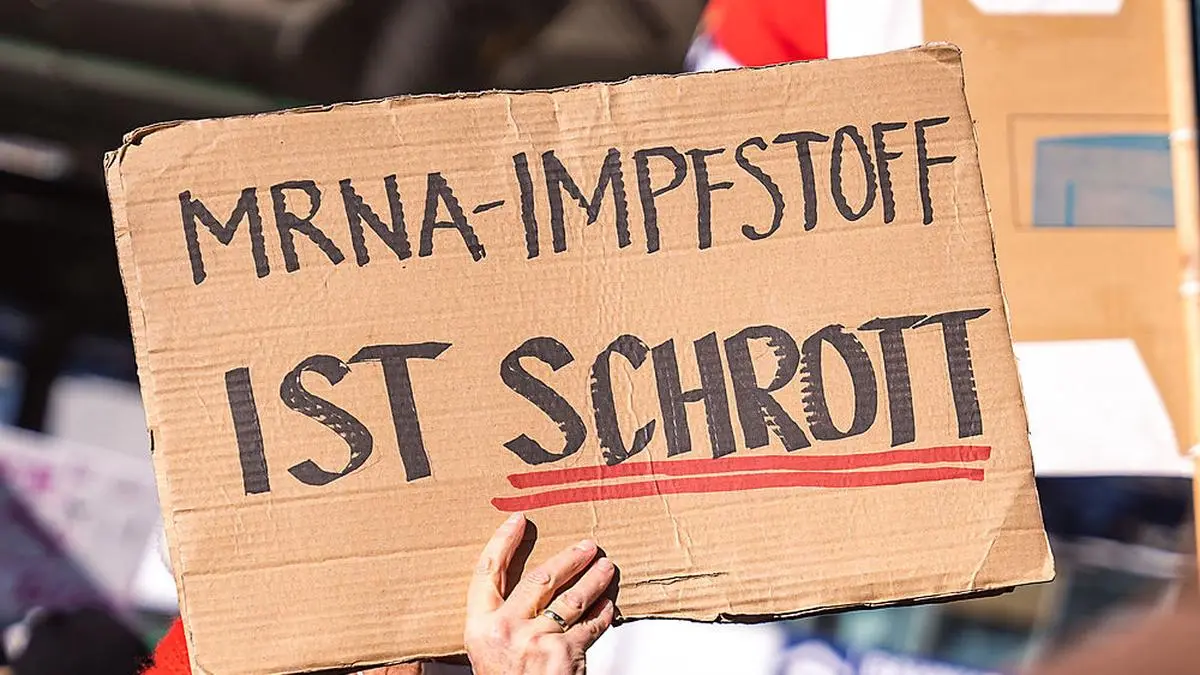 MRNA-IMPFSTOFF
IST SCHROTT